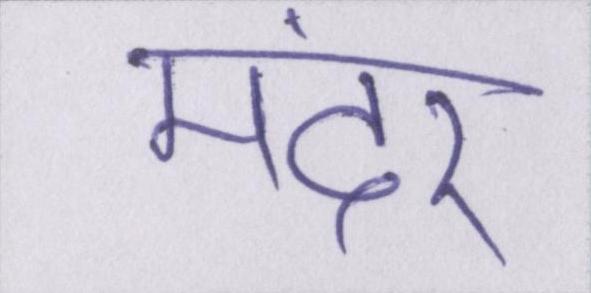 मंदर